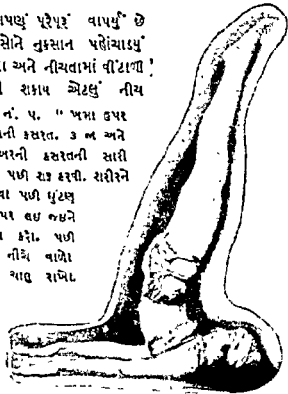 પણું પૂરેપૂરું વાપર્યું છે
સોને નુકસાન પહોંચાડયું
ા અને નીચતામાં વીંટાળા!
ી શકાય એટલું નીચ
નં. ૫. " ખભા ઉપર
ની કસરત. ૩ જા અને
ખરની કસરતની સારી
પછી શરૂ કરવી. શરીરને
વા પછી ઘુંટણ
પર લઇ જઇને
કરો. પછી
નીચે વાળો
ચાલુ રાખો.